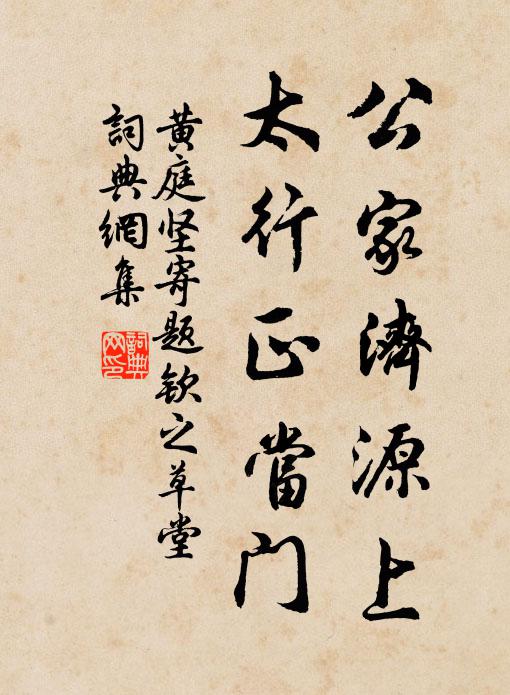 公家濟源上
太行正當門
黄庭坚寄题钦之草堂
詞典網集
詞典網印